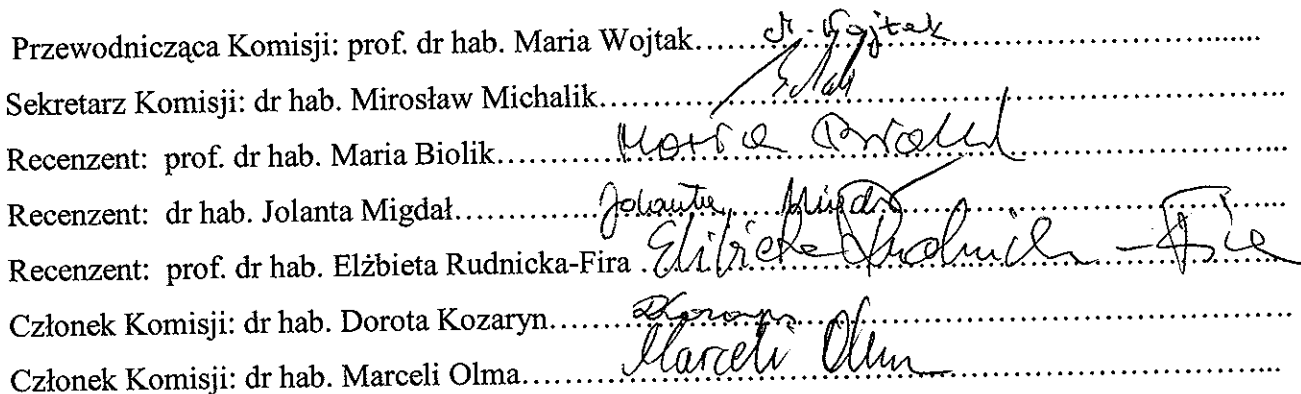 Przewodnicząca Komisji: prof. dr hab. Maria Wojtak.....M. Wojtak.....
Sekretarz Komisji: dr hab. Mirosław Michalik.....
Recenzent: prof. dr hab. Maria Biolik.....Maria Biolik.....
Recenzent: dr hab. Jolanta Migdał.....Jolanta Migdał.....
Recenzent: prof. dr hab. Elżbieta Rudnicka-Fira .Elżbieta Rudnicka-Fira
Członek Komisji: dr hab. Dorota Kozaryn.....
Członek Komisji: dr hab. Marceli Olma.....Marceli Olma.....